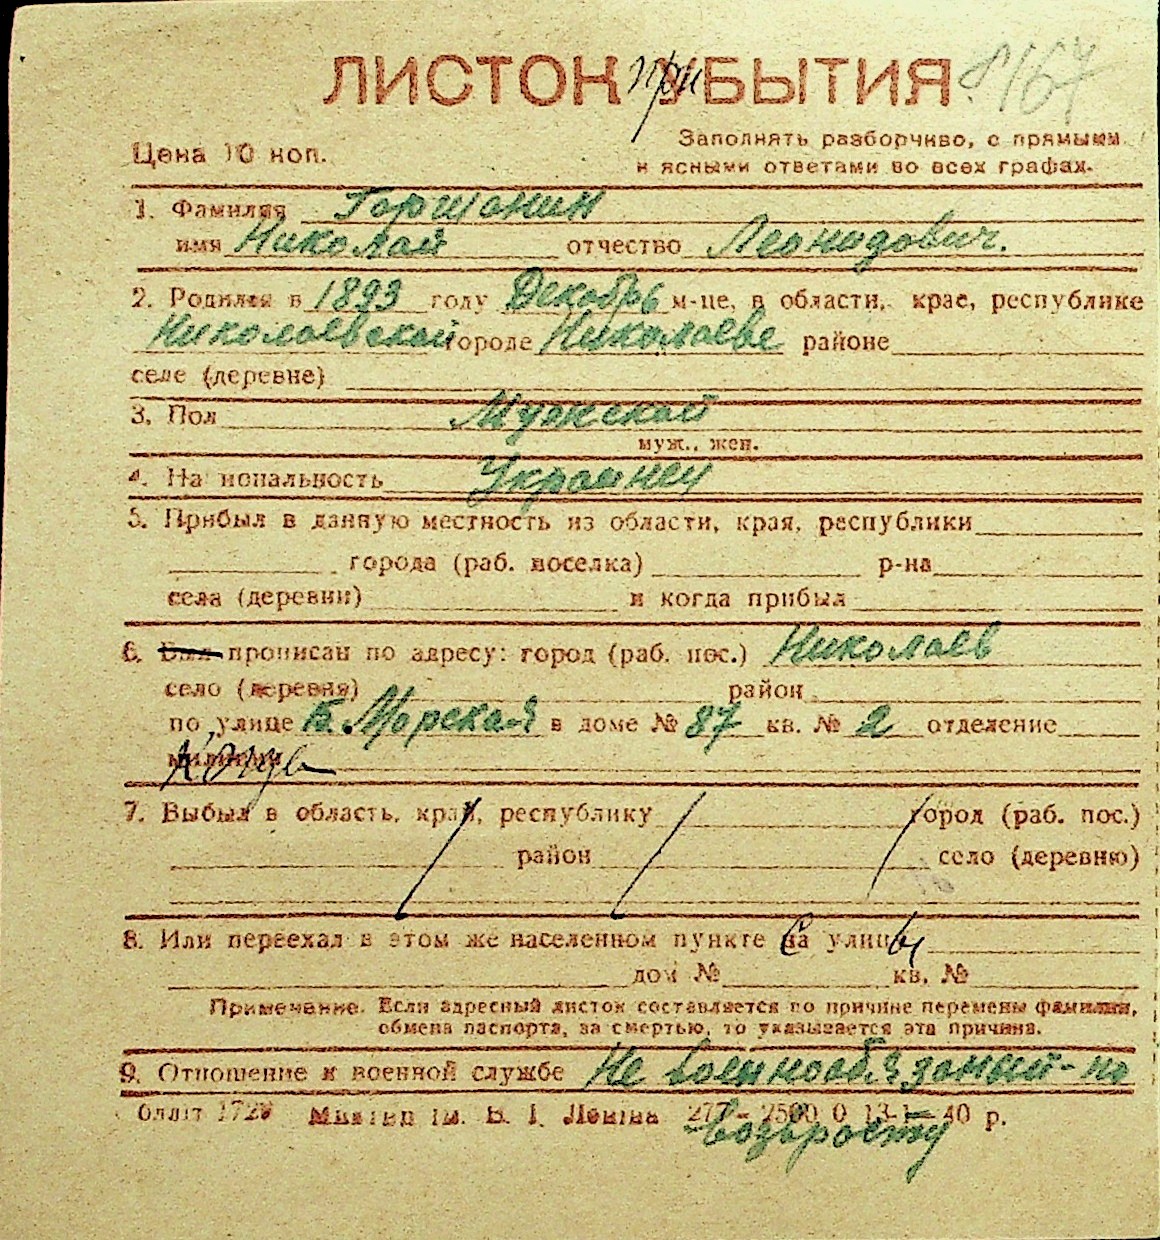 ЛИСТОК УБЫТИЯ
при
167
Цена 10 коп.
Заполнять разборчиво, с прямыми
и ясными ответами во всех графах.
1. Фамилия Горшонин
имя Николай отчество Леонидович.
2. Родился в 1893 году Декабрь м-це, в области, крае, республике
Николаевской городе Николаеве районе
селе (деревне)
3. Пол Мужской
муж., жен.
4. Национальность Украинец
5. Прибыл в данную местность из области, края, республики
города (раб. поселка) р-на
села (деревни) и когда прибыл
6. Был прописан по адресу: город (раб. пос.) Николаев
село (деревня) район
по улице Б. Морская в доме № 87 кв. № 2 отделение
милиции
7. Выбыл в область, край, республику город (раб. пос.)
район село (деревню)
8. Или переехал в этом же населенном пункте на улицу
дом № кв. №
Примечание. Если адресный листок составляется по причине перемены фамилии,
обмена паспорта, за смертью, то указывается эта причина.
9. Отношение к военной службе Не военнообязаный-по
возврасту
1729 В. І. Леніна 277 - 2500 0 13-1-40 р.